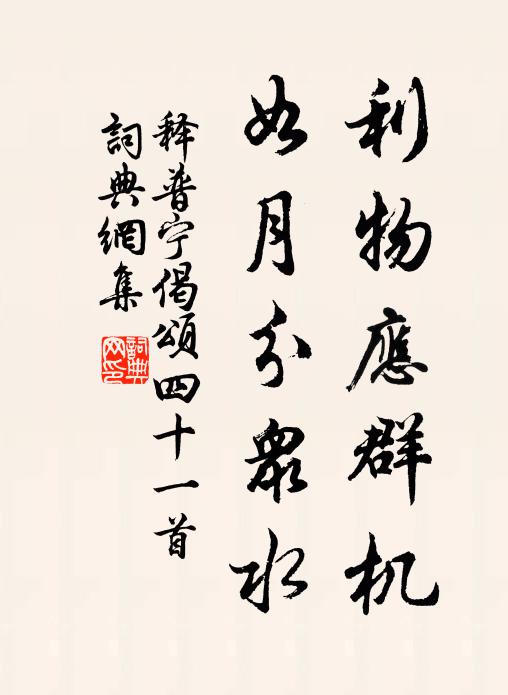 利物應群机
如月分眾水
释普宁偈頌四十一首
詞典網集
詞典網印